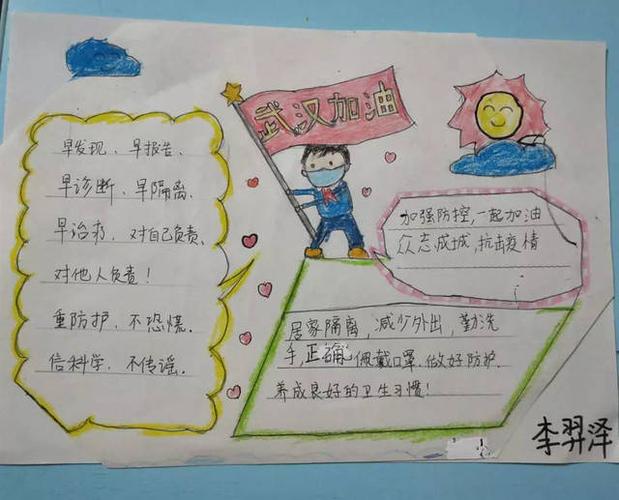 武汉加油
早发现、早报告、
早诊断、早隔离、
早治疗、对自己负责、
对他人负责！
重防护、不恐慌、
信科学、不传谣.
加强防控,一起加油
众志成城,抗击疫情
居家隔离,减少外出,勤洗
手,正确佩戴口罩.做好防护.
养成良好的卫生习惯!
李羿泽